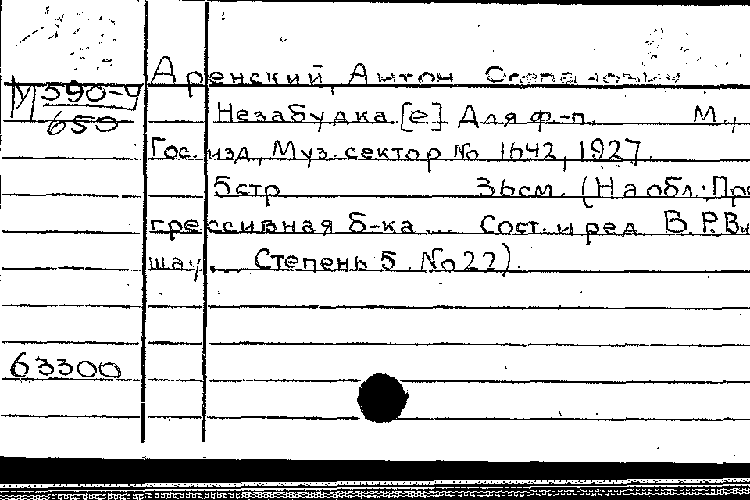 Аренский, Антон Степанович
У 590-4
650
Незабудка [е] Для ф.-п. М.,
Гос. изд., Муз. сектор No 1642, 1927.
5 стр 36 см. (На обл.: Про
грессивная б-ка ... Сост. и ред. В.Р. Ви
шау ... Степень 5. No 22).
63300